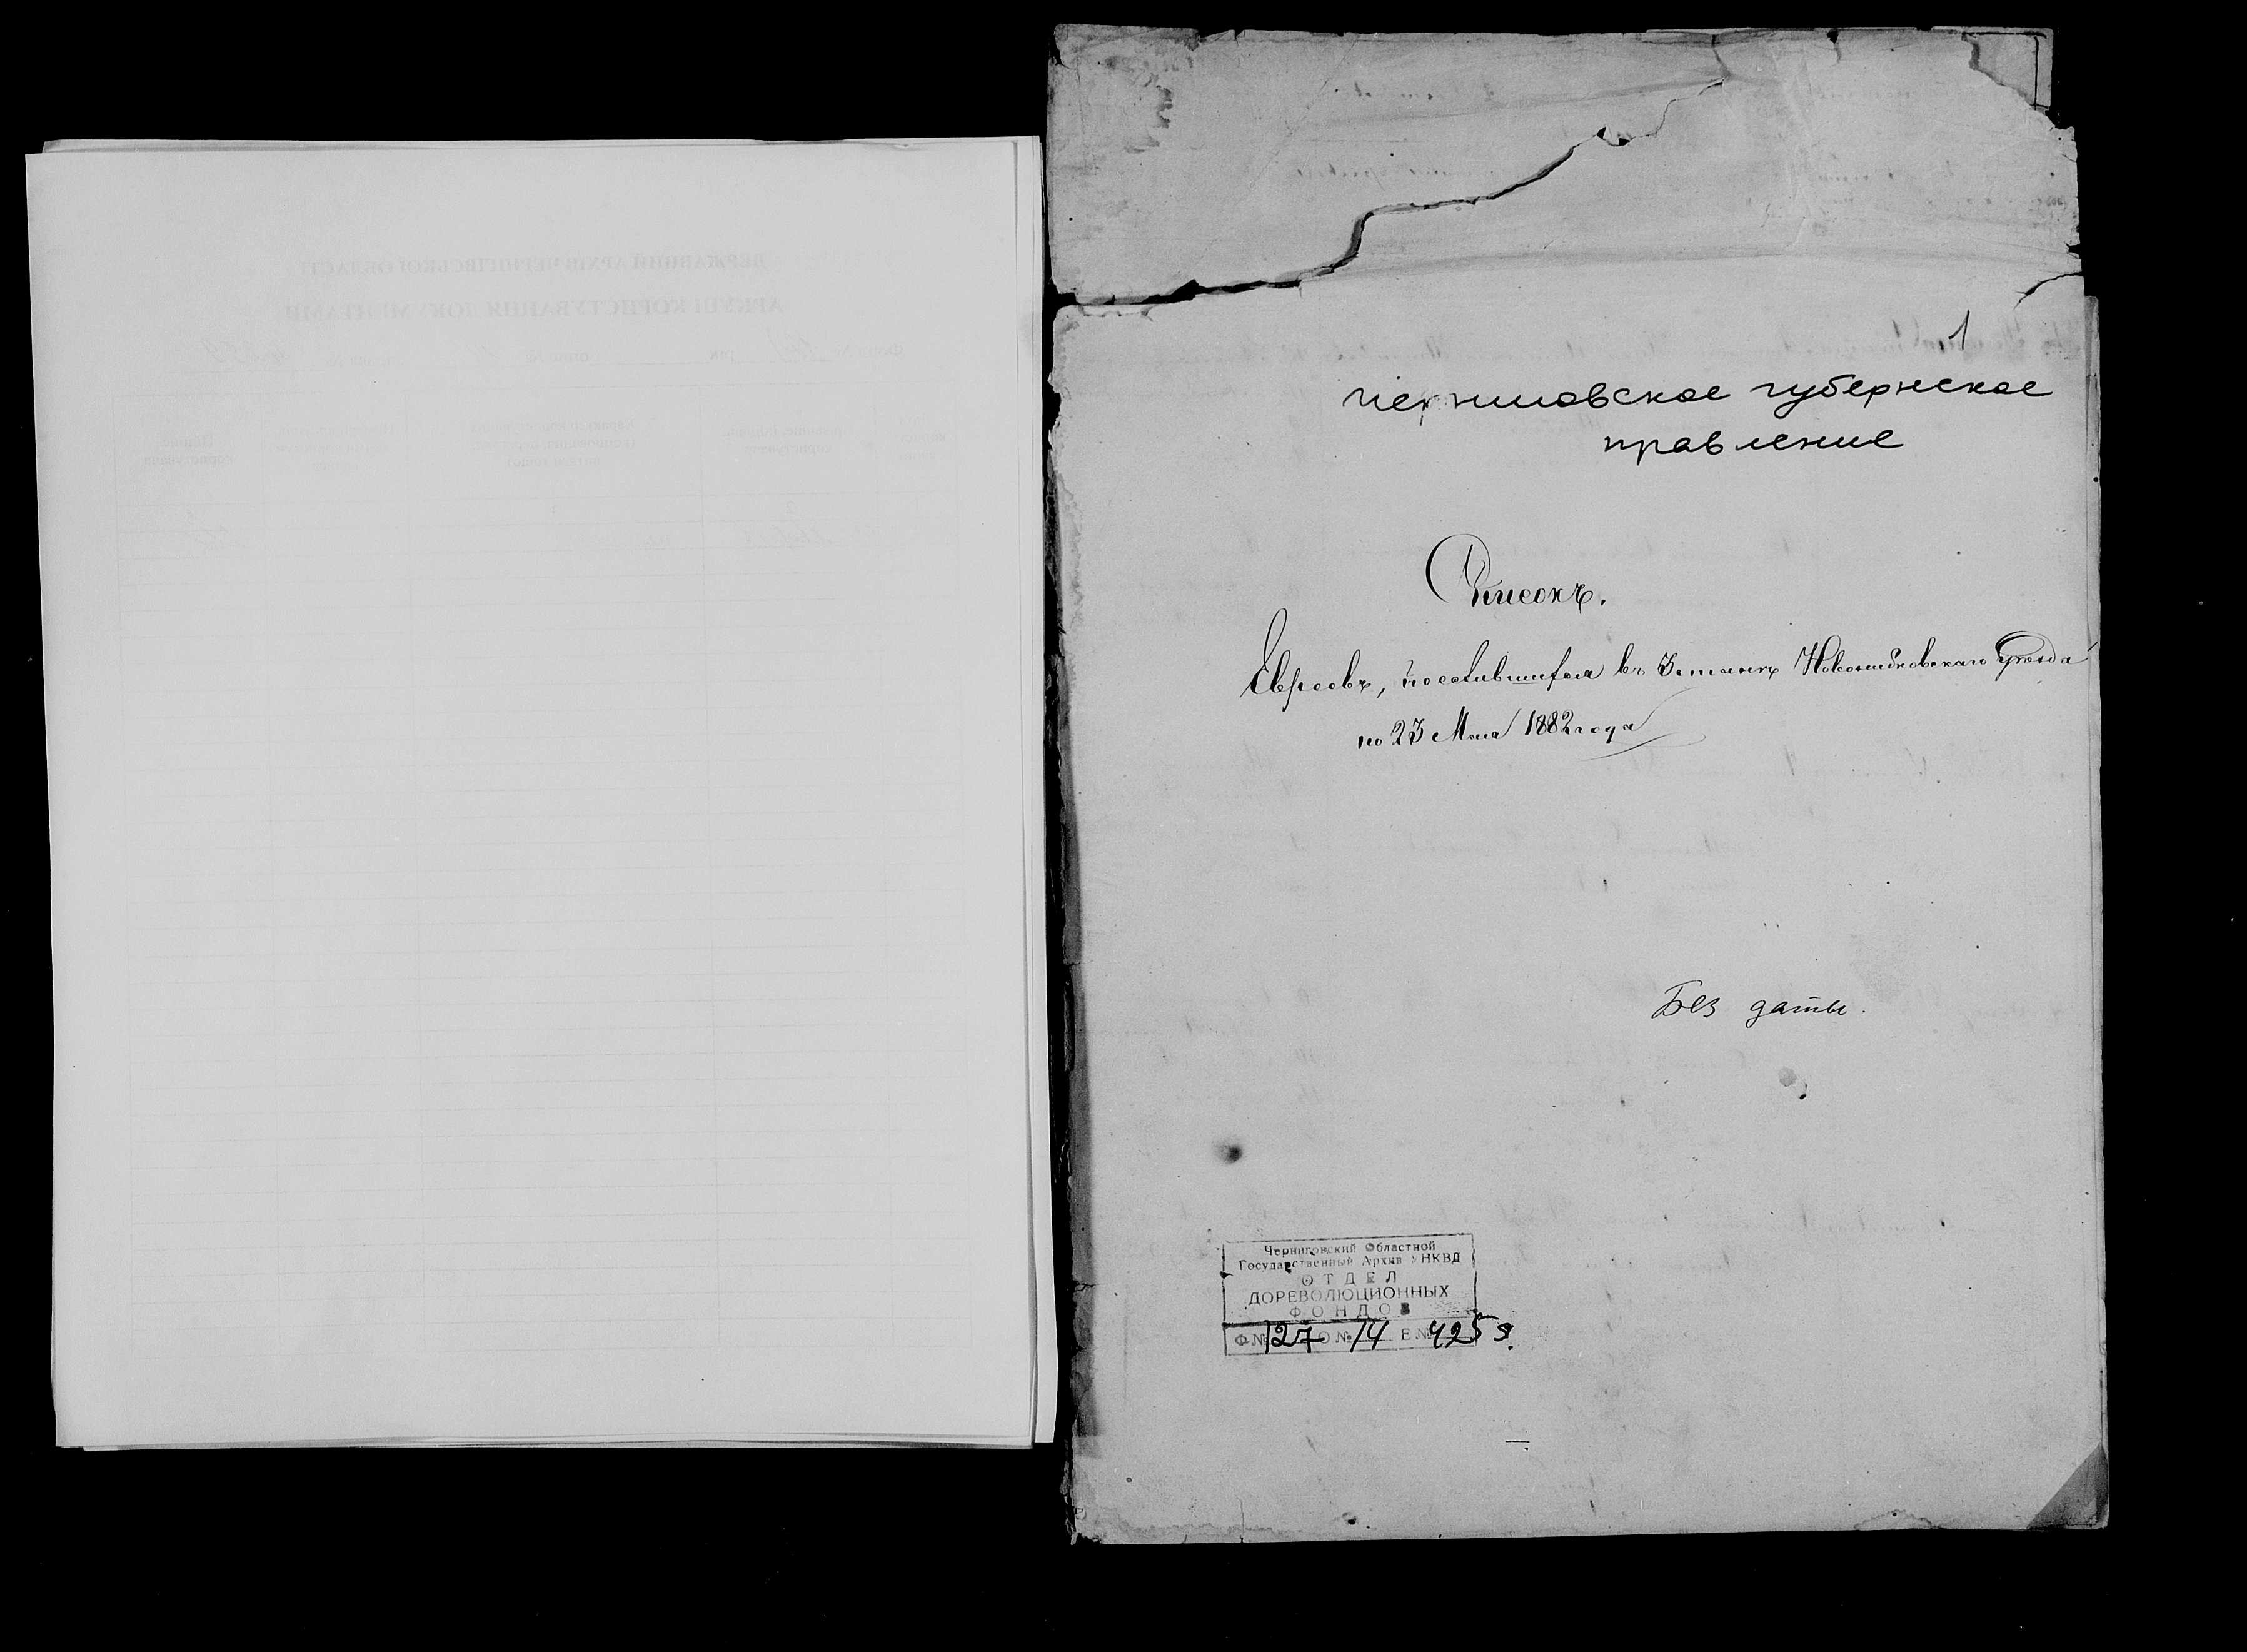 1
Черниговское губернское
правление
Список.
Евреевъ, поселившихся въ 3 станѣ Новозыбковскаго Уѣзда
по 23 Мая 1882 года
Без даты.
Черниговский Областной
Государственный Архив УНКВД
ОТДЕЛ
ДОРЕВОЛЮЦИОННЫХ
ФОНДОВ
Ф.№ 127 О.№ 14 Е.№ 4259.
ДЕРЖАВНИЙ АРХІВ ЧЕРНІГІВСЬКОЇ ОБЛАСТІ
АРКУШ КОРИСТУВАННЯ ДОКУМЕНТАМИ